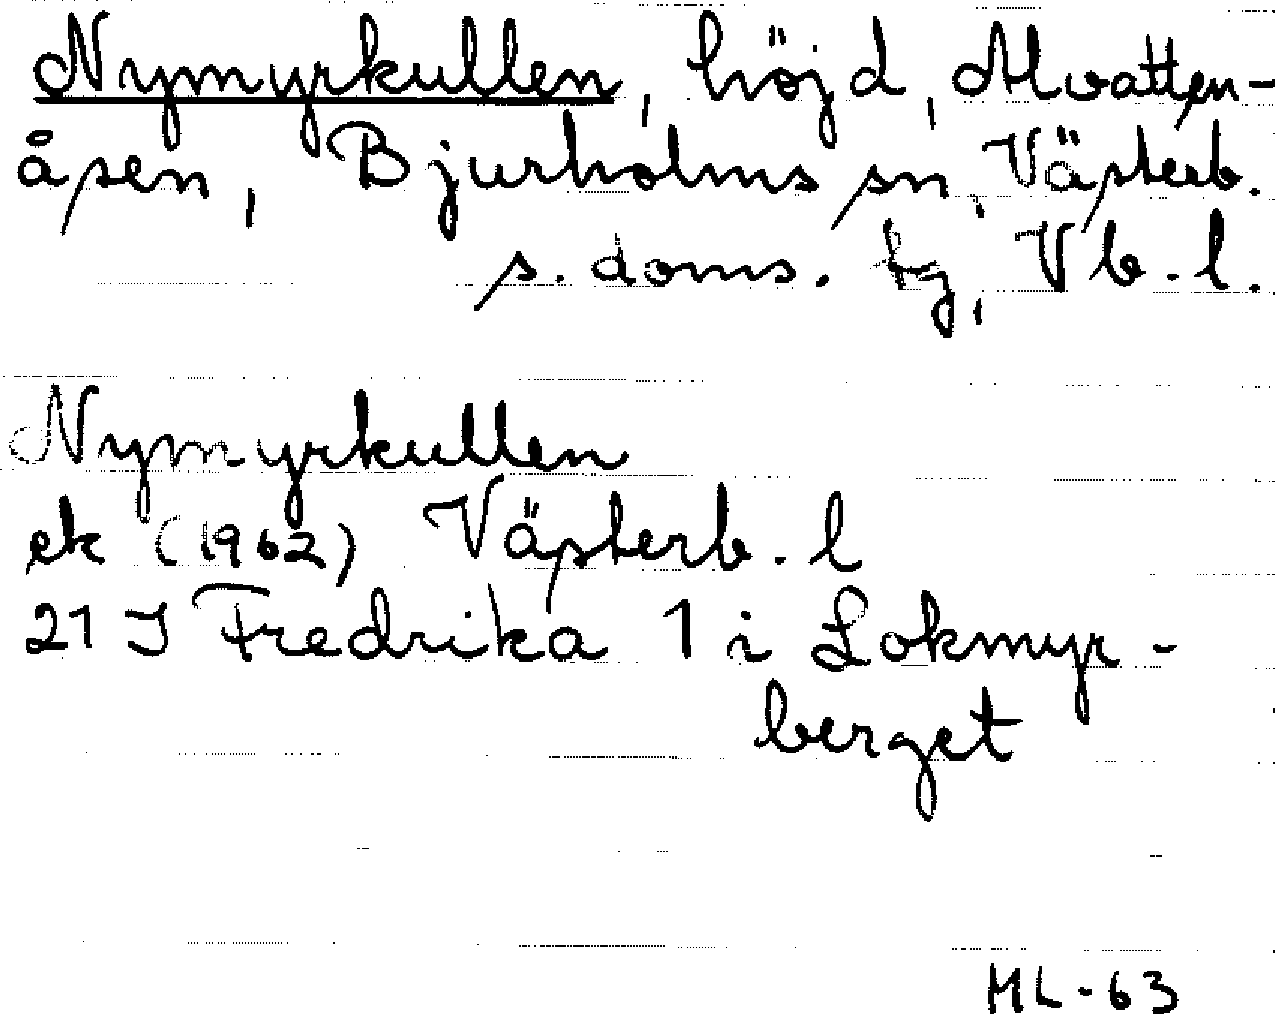 Nymyrkullen, höjd, Alvatten-
åsen, Bjurholms sn, Västerb.
s. doms. fg, Vb. l.
Nymyrkullen
ek (1962) Västerb. l
21 J Fredrika 1 i Lokmyr-
berget
HL-63